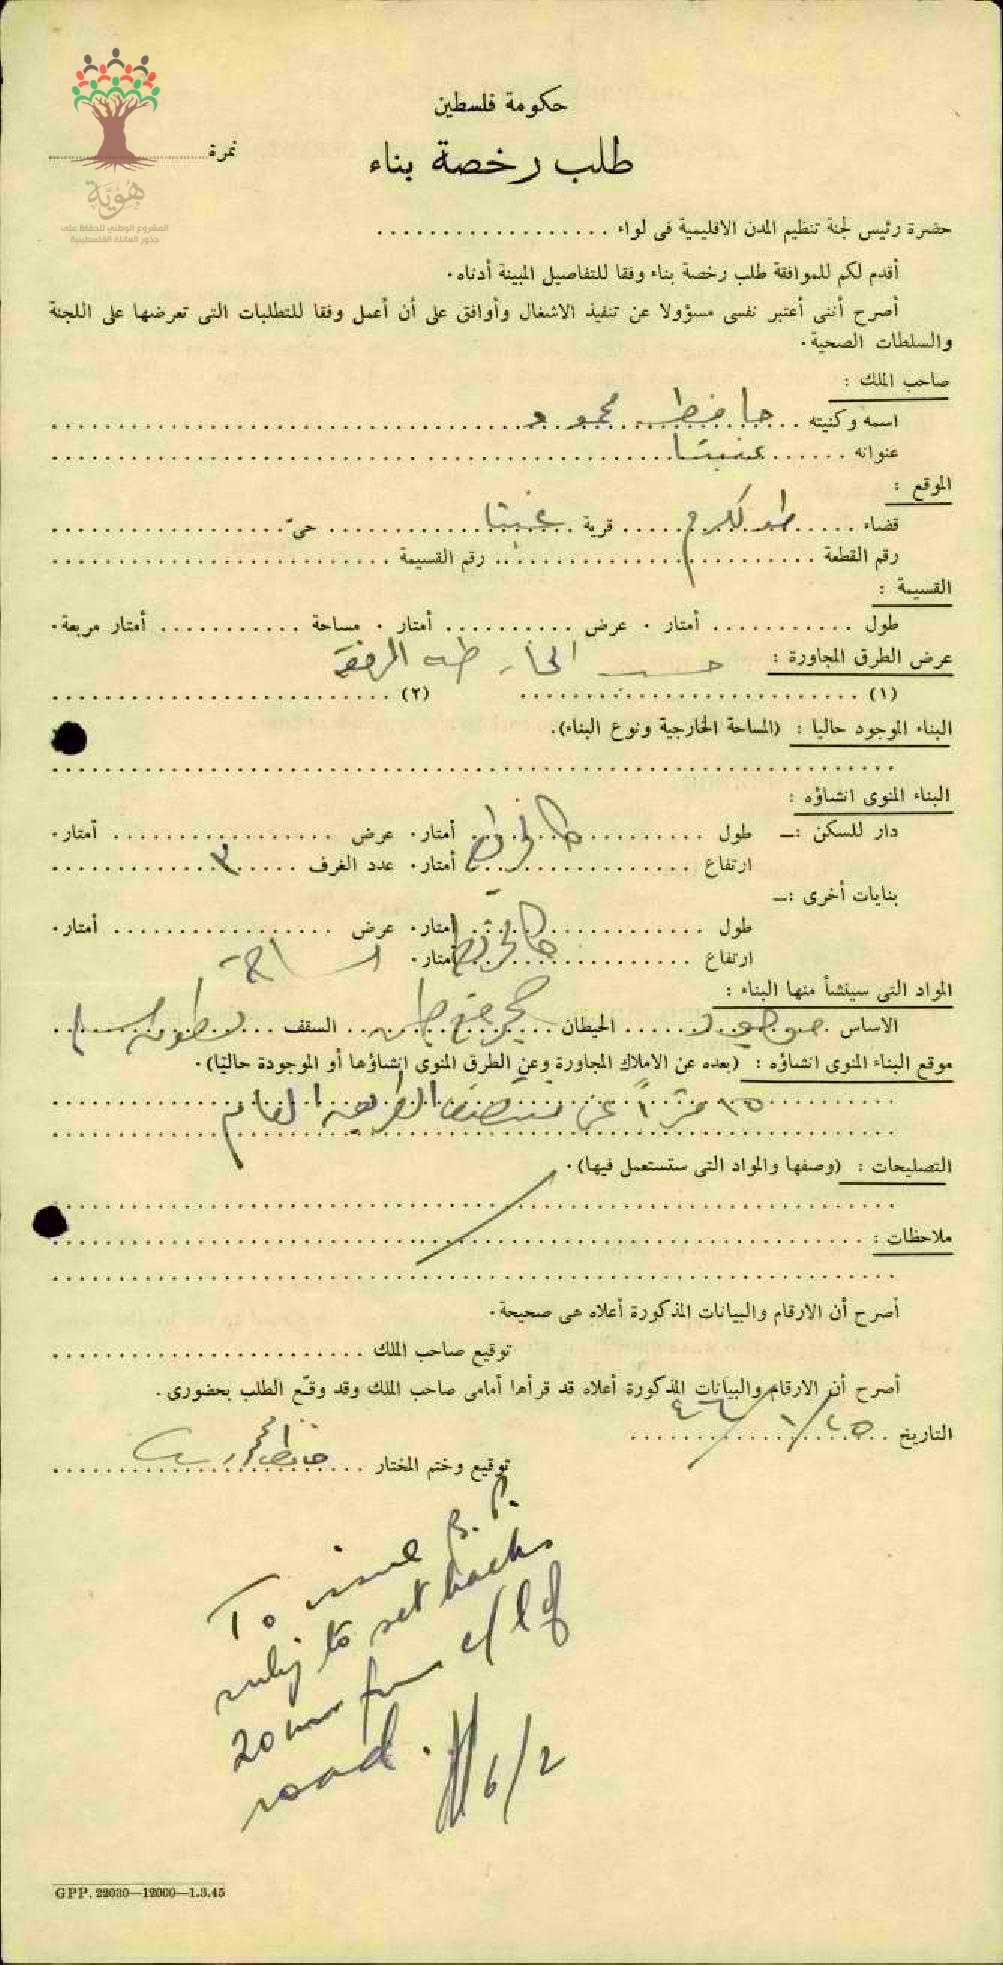 هُوِيَّة
المشروع الوطني للحفاظ على
جذور العائلة الفلسطينية
حكومة فلسطين
طلب رخصة بناء
نمرة
حضرة رئيس لجنة تنظيم المدن الاقليمية فى لواء
أقدم لكم للموافقة طلب رخصة بناء وفقا للتفاصيل المبينة أدناه.
أصرح أنى أعتبر نفسى مسؤولا عن تنفيذ الاشغال وأوافق على أن أعمل وفقا للمتطلبات التى تعرضها على اللجنة
والسلطات الصحية.
صاحب الملك :
اسمه وكنيته حافظ محمود
عنوانه عنبتا
الموقع :
قضاء طولكرم قرية عنبتا حىّ
رقم القطعة رقم القسيمة
القسيمة :
طول أمتار . عرض أمتار . مساحة أمتار مربعة.
عرض الطرق المجاورة : حسب الخارطه المرفقه
(١) (٢)
البناء الموجود حاليا : (المساحة الخارجية ونوع البناء).
البناء المنوى انشاؤه :
دار للسكن :— طول أمتار. عرض أمتار.
ارتفاع أمتار. عدد الغرف ٣
بنايات أخرى :—
طول أمتار. عرض أمتار.
ارتفاع أمتار.
المواد التى سينشأ منها البناء :
الاساس الحيطان السقف
موقع البناء المنوى انشاؤه : (بعده عن الاملاك المجاورة وعن الطرق المنوى انشاؤها أو الموجودة حاليا).
١٥ مترًا عن منتصف الطريق العام
التصليحات : (وصفها والمواد التى ستستعمل فيها).
ملاحظات :
أصرح أن الارقام والبيانات المذكورة أعلاه هى صحيحة.
توقيع صاحب الملك
أصرح أن الارقام والبيانات المذكورة أعلاه قد قرأها أمامى صاحب الملك وقد وقّع الطلب بحضورى.
التاريخ ٢٥/١/٤٦
توقيع وختم المختار
To issue B.P.
subj to set backs
20 ms from c/l of
road.
6/2
GPP. 22030—12000—1.3.45